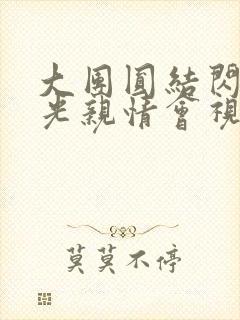 大團圓結閃
光親情會視
莫莫不停